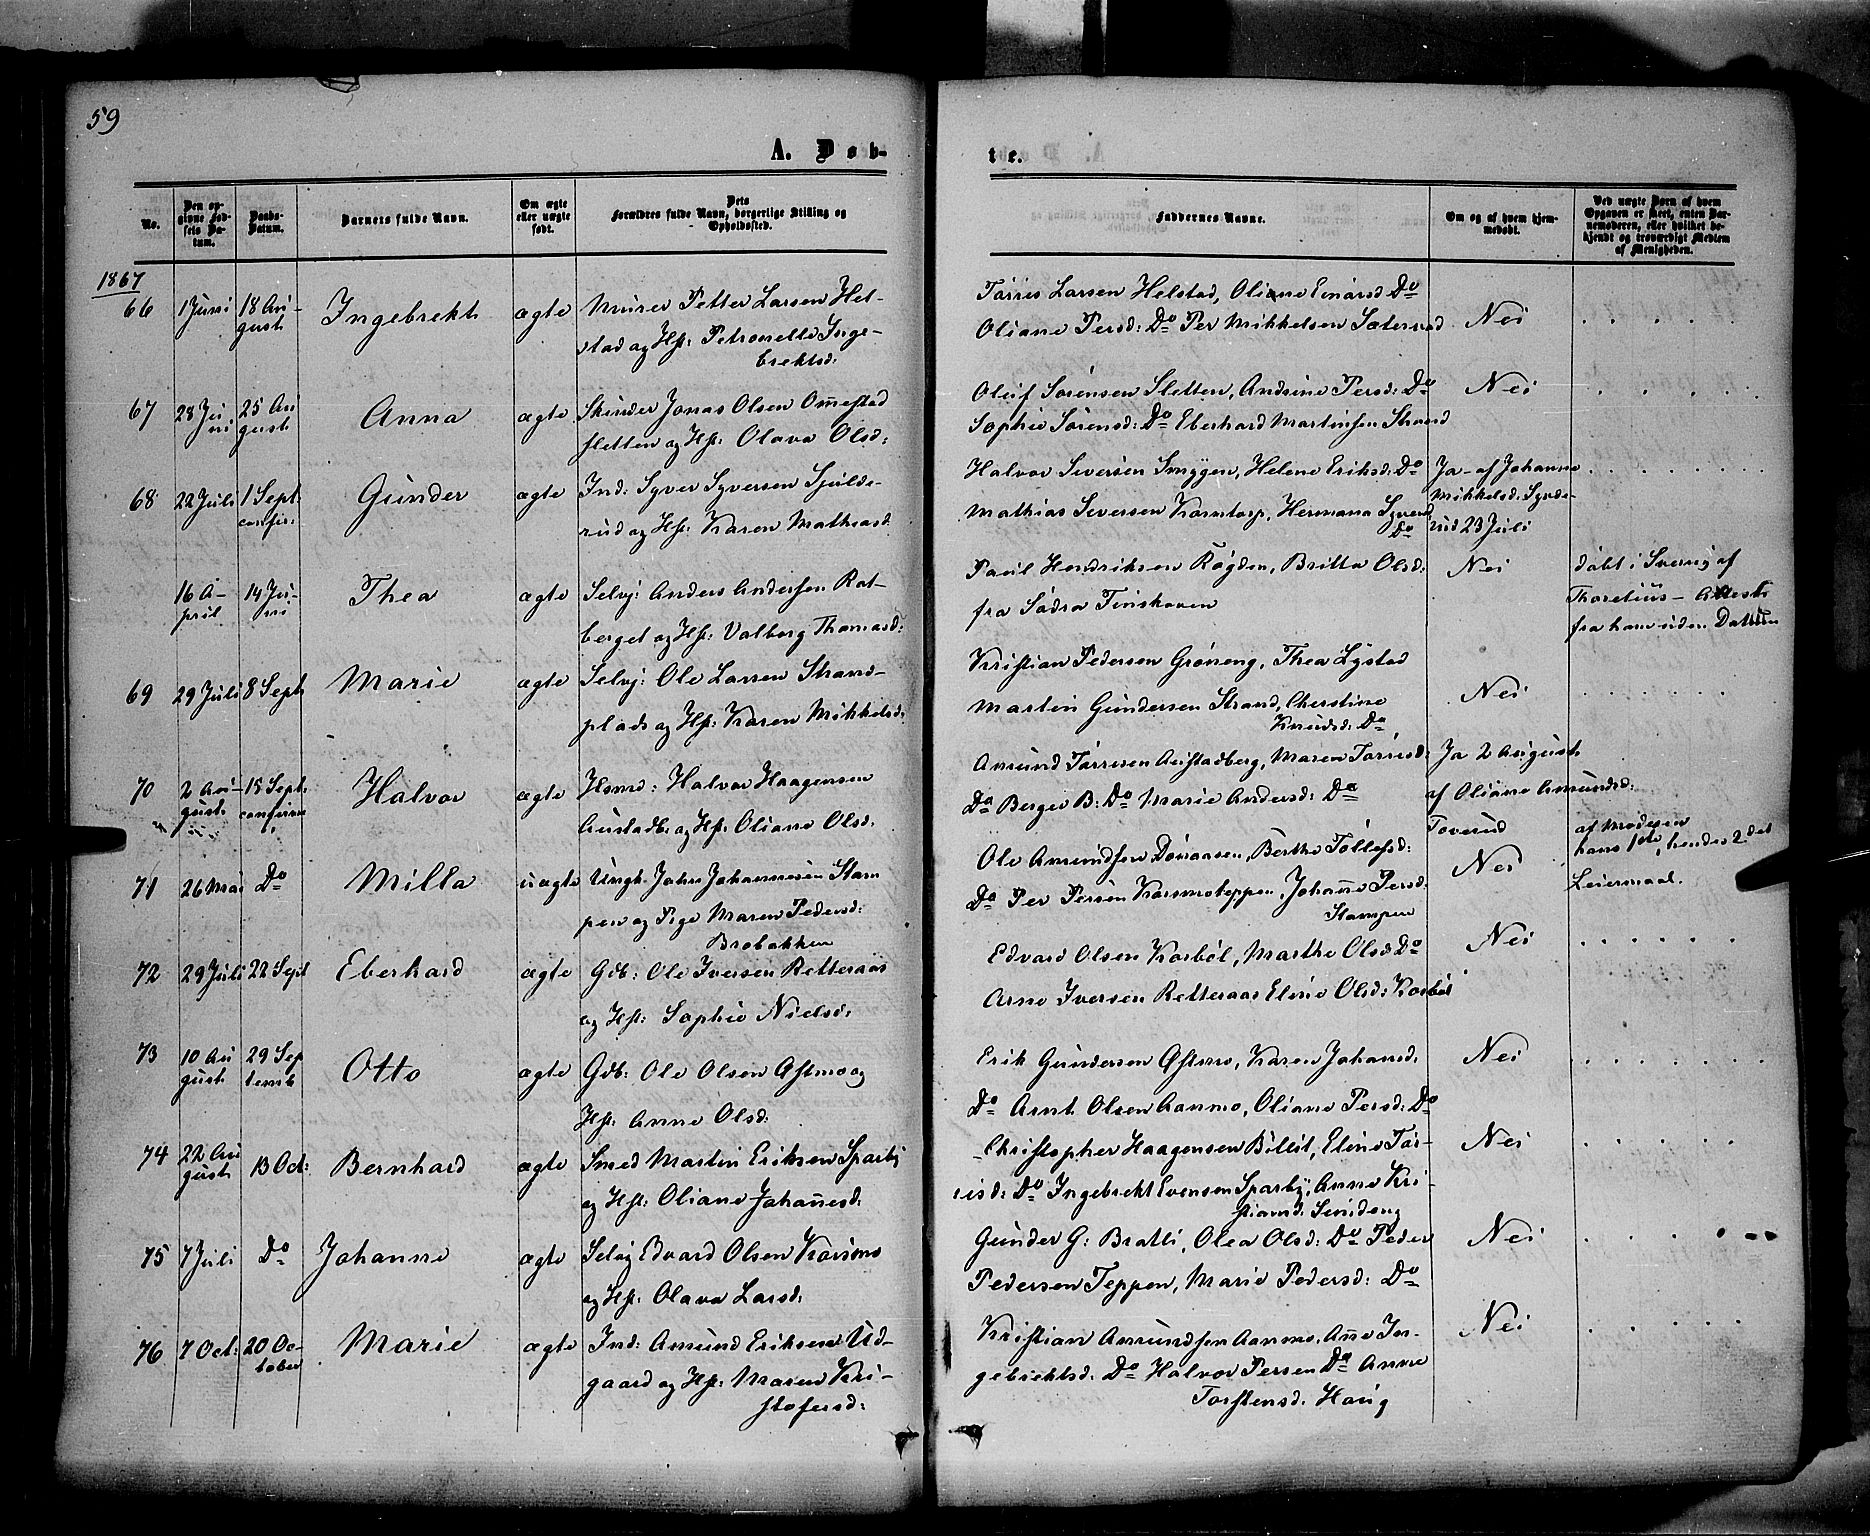 59
A. Døb-
te.
No.
Den opgivne Fødsels Datum.
Daabs-Datum.
Barnets fulde Navn.
Om ægte eller uægte født.
Dets Forældres fulde Navn, borgerlige Stilling og Opholdssted.
Faddernes Navne.
Om og af hvem hjemmedøbt.
Ved uægte Børn af hvem Opgaven er skeet, enten Barnemoderen, eller hvilket bekjendt og troværdigt Medlem af Menigheden.
1867
66 1 Juni 18 Au-
gust Ingebrekt ægte Murer Petter Larsen Hel-
stad og Hst: Petronelle Inge-
brektsd:
Tørris Larsen Helstad, Oliane Einarsd Do
Oliane Persd: Do Per Mikkelsen Sæter Nei
67 28 Ju
ni 25 Au
gust Anna ægte Skinder Jonas Olsen Ommestad
sletten og Hst: Olava Olsd:
Oluf Sørensen Sletten, Andrine Persd: Do Nei
Sophie Sørensd: Do Eberhard Martinsen Strand
68 22 Juli 1 Sept.
confir: Gunder ægte Ind: Syver Syversen Sjulde-
rud og Hst: Karen Mathiasd.
Halvor Seversen Smyggen, Helene Eriksd: Do
Mathias Seversen Korntorp, Hermana Syversd.
Do
Ja – af Johanne
Mikkelsd: Synde-
rud 23 Juli
16 A-
pril 14 Ju-
ni Thea ægte Selvj: Anders Andersen Rot-
berget og Hst: Valborg Thomasd:
Paul Hendriksen Røgden, Britta Olsd:
fra Södra Finskoven Nei
døbt i Sverig af
Thoretius – Attest
fra ham siden Datum
69 29 Juli 8 Sept. Marie ægte Selvj: Ole Larsen Strand-
plads og Hst: Karen Mikkelsd:
Kristian Pedersen Grøneng, Thea Lystad
Martin Gundersen Strand, Cherstine
Knudsd: Do Nei
70 2 Au-
gust 15 Sept.
confirm Halvor ægte Hsmd: Halvor Haagensen
Austadb. og Hst: Oliane Olsd.
Amund Tørresen Austadberg, Maren Tørrisd:
Do Berger B: Do Marie Andersd: Do
Ja 2 August
af Oliane Amundsd:
Toverud
71 26 Mai Do Milla uægte Ungk: John Johannesen Stam
pen og Pige Maren Pedersd:
Brobakken
Ole Amundsen Dønaasen, Berthe Tollefsd:
Do Per Persen Kosmoteppen, Johanne Persd.
Stampen Nei
af Moderen
hans 1ste, hendes 2det
Leiermaal.
72 29 Juli 22 Sept Eberhard ægte Gdb: Ole Iversen Retteraas
og Hst: Sophie Nielsd:
Edvard Olsen Korbøl, Marthe Olsd Do Nei
Arne Iversen Retteraas Eline Olsd: Korbøl
73 10 Au
gust 29 Sep
temb Otto ægte Gdb: Ole Olsen Astmo og
Hst: Anne Olsd:
Erik Gundersen Østmo, Karen Johansd. Nei
Do Arnt Olsen Aanmo, Oliane Persd: Do
74 22 Au
gust 13 Oct: Bernhard ægte Smed Martin Eriksen Sparby
og Hst: Oliane Johannesd:
Christopher Haagensen Bollit, Eline Tør-
risd: Do Ingebrekt Evensen Sparby, Anne Kri-
stiansd: Nei
75 7 Juli Do Johanne ægte Selvj Edvard Olsen Kosmo
og Hst: Olava Larsd:
Gunder G: Bratli, Olea Olsd: Do Peder
Pedersen Teppen, Marie Pedersd: Do Nei
76 7 Oct: 20 Oc-
tober Marie ægte Ind: Amund Eriksen Ud-
gaard og Hst: Maren Kri-
stofersd:
Kristian Amundsen Aanmo, Anne In-
gebrektsd: Do Halvor Persen Do Anne
Torstensd. Haug Nei